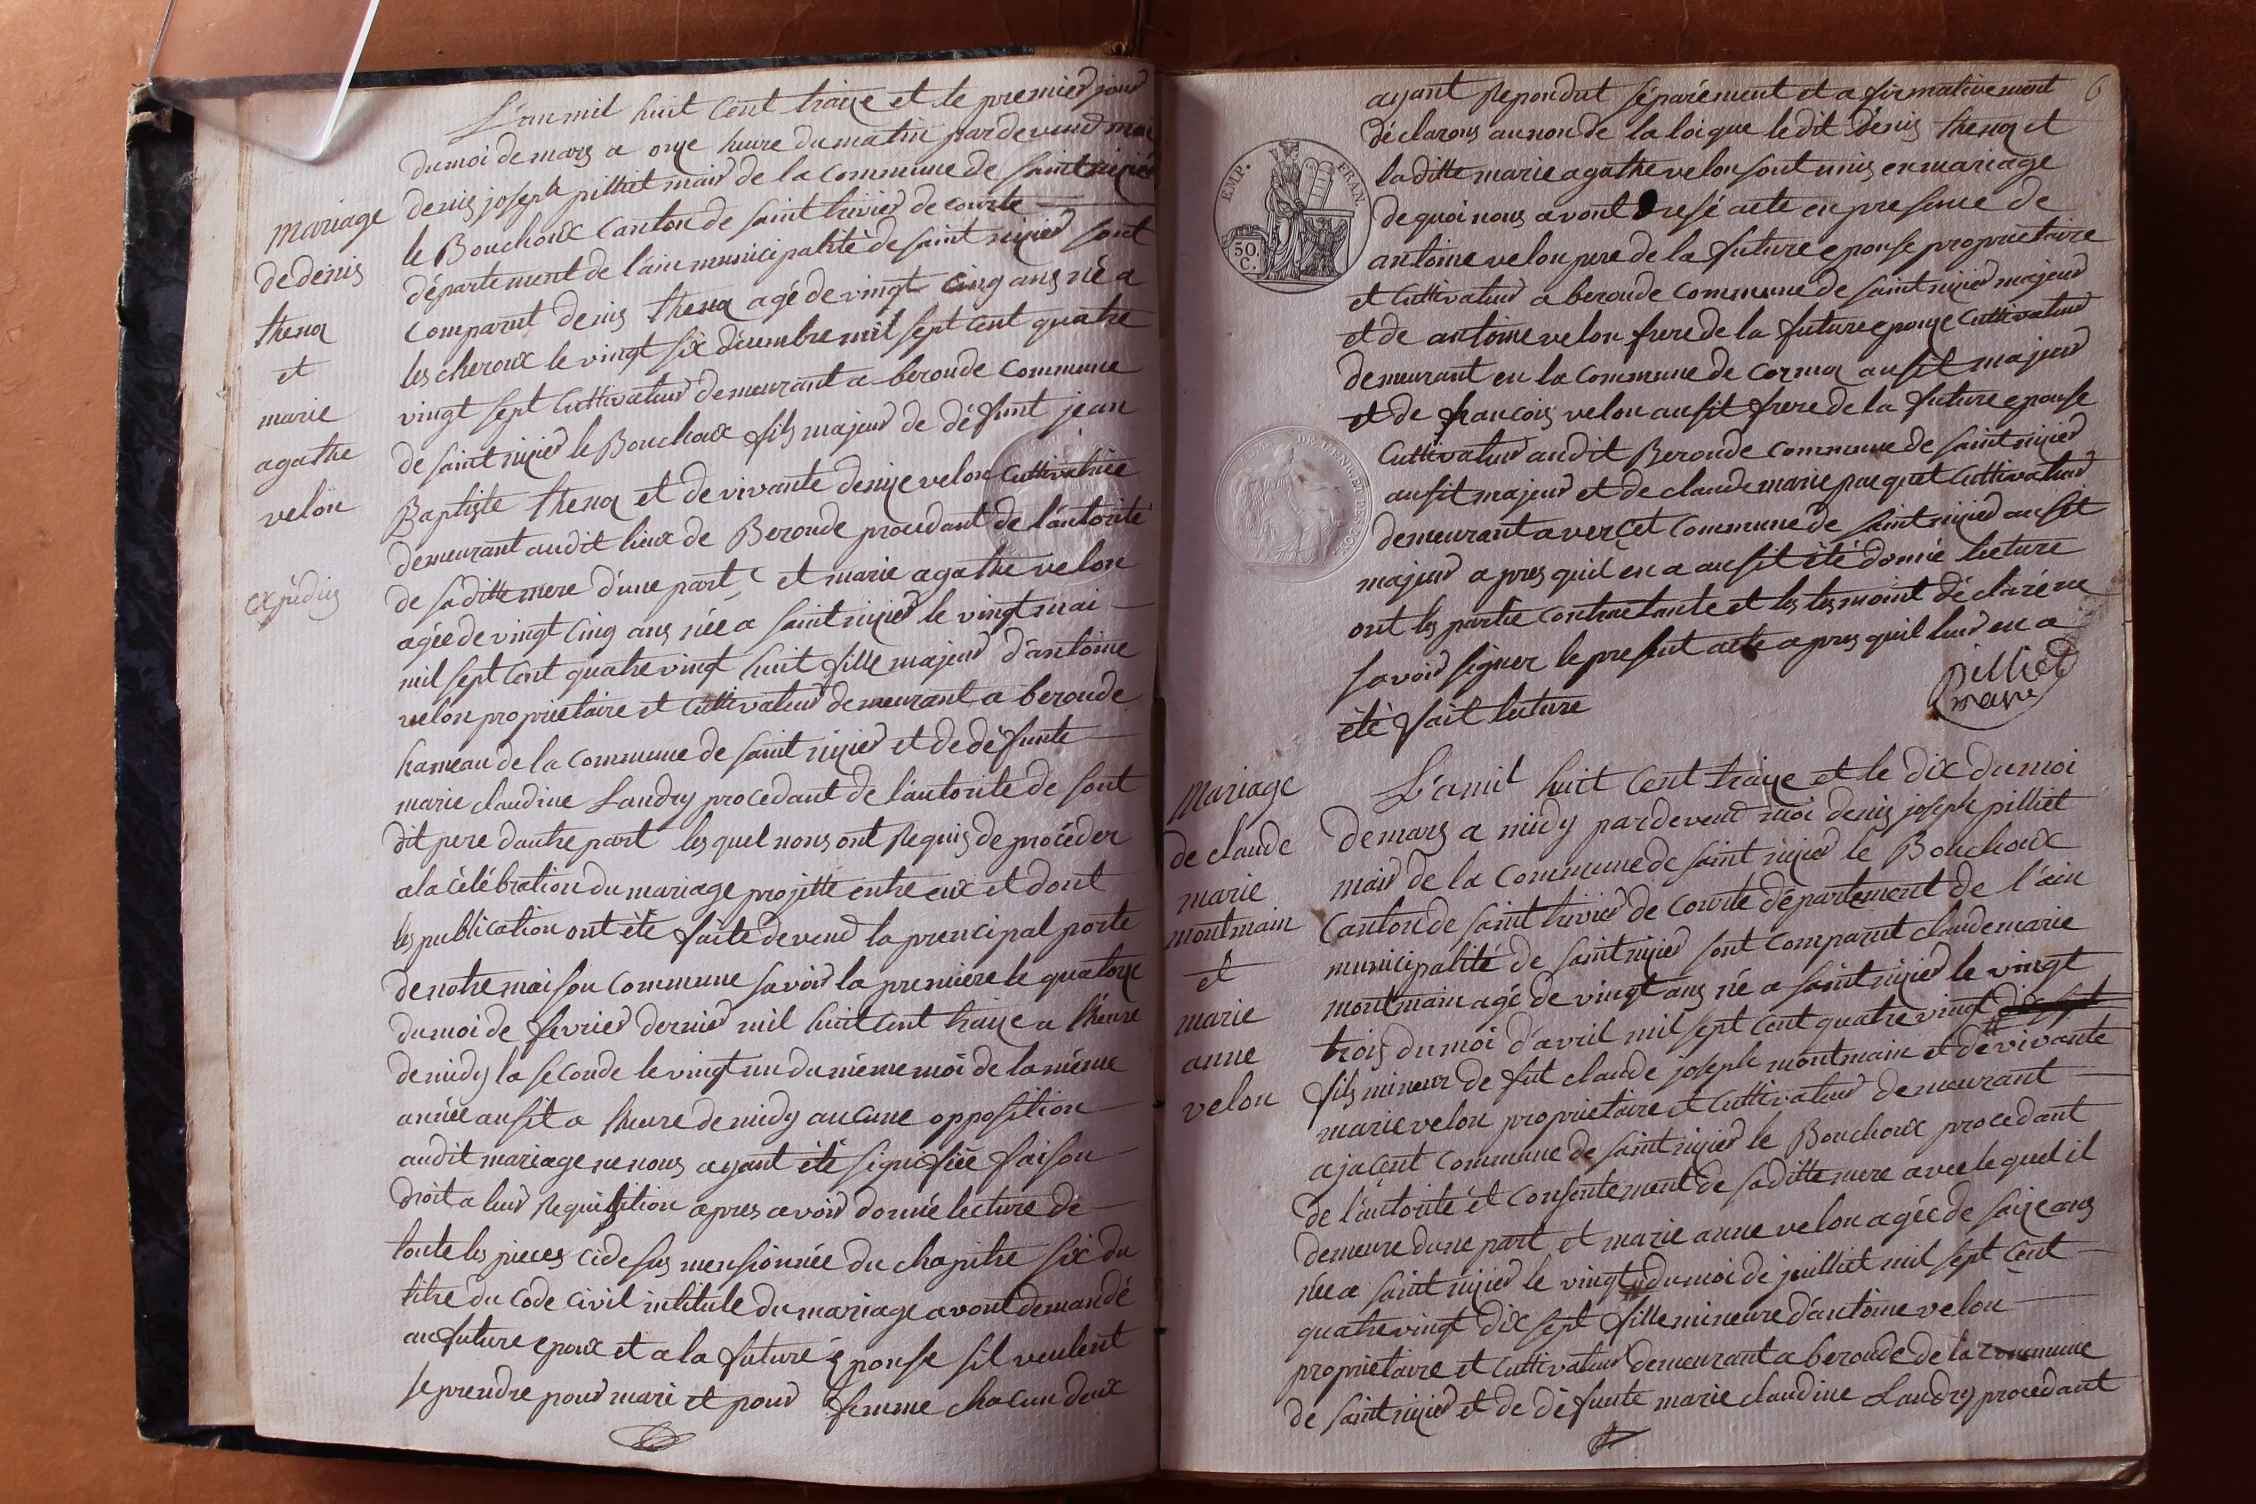 L'an mil huit cent traize et le premier jour
du moi de mars a onze heure du matin pardevend moi
denis joseph pilliet mair de la commune de saint nizier
le Bouchoux canton de saint trivier de courte
département de l'ain municipalité de saint nizier sont
comparut denis thenoz agé de vingt cinq ans né a
lescheroux le vingt six décembre mil sept cent quatre
vingt sept cultivateur demeurant a beroude commune
de saint nizier le Bouchoux fils majeur de défunt jean
Baptiste thenoz et de vivante denize velon cultivatrice
demeurant audit lieux de Beroude procedant de l'autorité
de saditte mere d'une part et marie agathe velon
agée de vingt cinq ans née a saint nizier le vingt mai
mil sept cent quatre vingt huit fille majeur d'antoine
velon proprietaire et cultivateur demeurant a beroude
hameau de la commune de saint nizier et de défunte
marie claudine Landry procedant de l'autorité de sont
dit pere d'autre part les quel nous ont Requis de procéder
a la célébration du mariage projetté entre eux et dont
les publication ont été faite devend la prencipal porte
de notre maison commune savoir la premiere le quatorze
du moi de fevrier dernier mil huit cent traize a l'heure
de midy la seconde le vingt un du méme moi de la méme
année ausit a l'heure de midy aucune opposition
audit mariage ne nous ayant été signifiée faison
droit a leur Requisition apres avoir donné lecture de
toute les pieces cidesus mensionnée du chapitre six du
titre du code civil intitulé du mariage avont demandé
au future epoux et a la future éponse sil veulent
se prendre pour mari et pour femme chacun deux
mariage
de denis
thenoz
et
marie
agathe
velon
expédiés
6
ayant Repondut séparément et afirmativement
déclarons au non de la loi que ledit denis thenoz et
la ditte marie agathe velon sont unis en mariage
de quoi nous avont dresé acte en presence de
antoine velon pere de la future epouse proprietaire
et cultivateur a beroude commune de saint nizier majeur
et de antoine velon frere de la future epouze cultivateur
demeurant en la commune de cormoz ausit majeur
et de francois velon ausit frere de la future epouse
cultivateur audit Beroude commune de saint nizier
ausit majeur et de claude marie pacquet cultivateur
demeurant a verçet commune de saint nizier ausit
majeur apres quil en a ausit été donnée lecture
ont les partie contractante et les tesmoint déclaré ne
savoir signer le present acte apres quil leur en a
été fait lecture
pilliet
maire
EMP. FRAN.
50 C.
Mariage
de claude
marie
montmain
et
marie
anne
velon
L'amil huit cent traize et le dix du moi
de mars a midy pardevend moi denis joseph pilliet
mair de la commune de saint nizier le Bouchoux
canton de saint trivier de courte département de l'ain
municipalité de saint nizier sont comparut claude marie
montmain agé de vingt ans né a saint nizier le vingt
trois du moi d'avril mil sept cent quatre vingt dix sept
fils mineur de fut claude joseph montmain et de vivante
marie velon proprietaire et cultivateur demeurant
a jaçent commune de saint nizier le Bouchoux procedant
de l'autorité et consentement de saditte mere avec lequel il
demeure d'une part et marie anne velon agée de saize ans
née a saint nizier le vingt du moi de juilliet mil sept cent
quatre vingt dix sept fille mineure d'antoine velon
proprietaire et cultivateur demeurant a beroude de la commune
de saint nizier et de défunte marie claudine Landry procedant